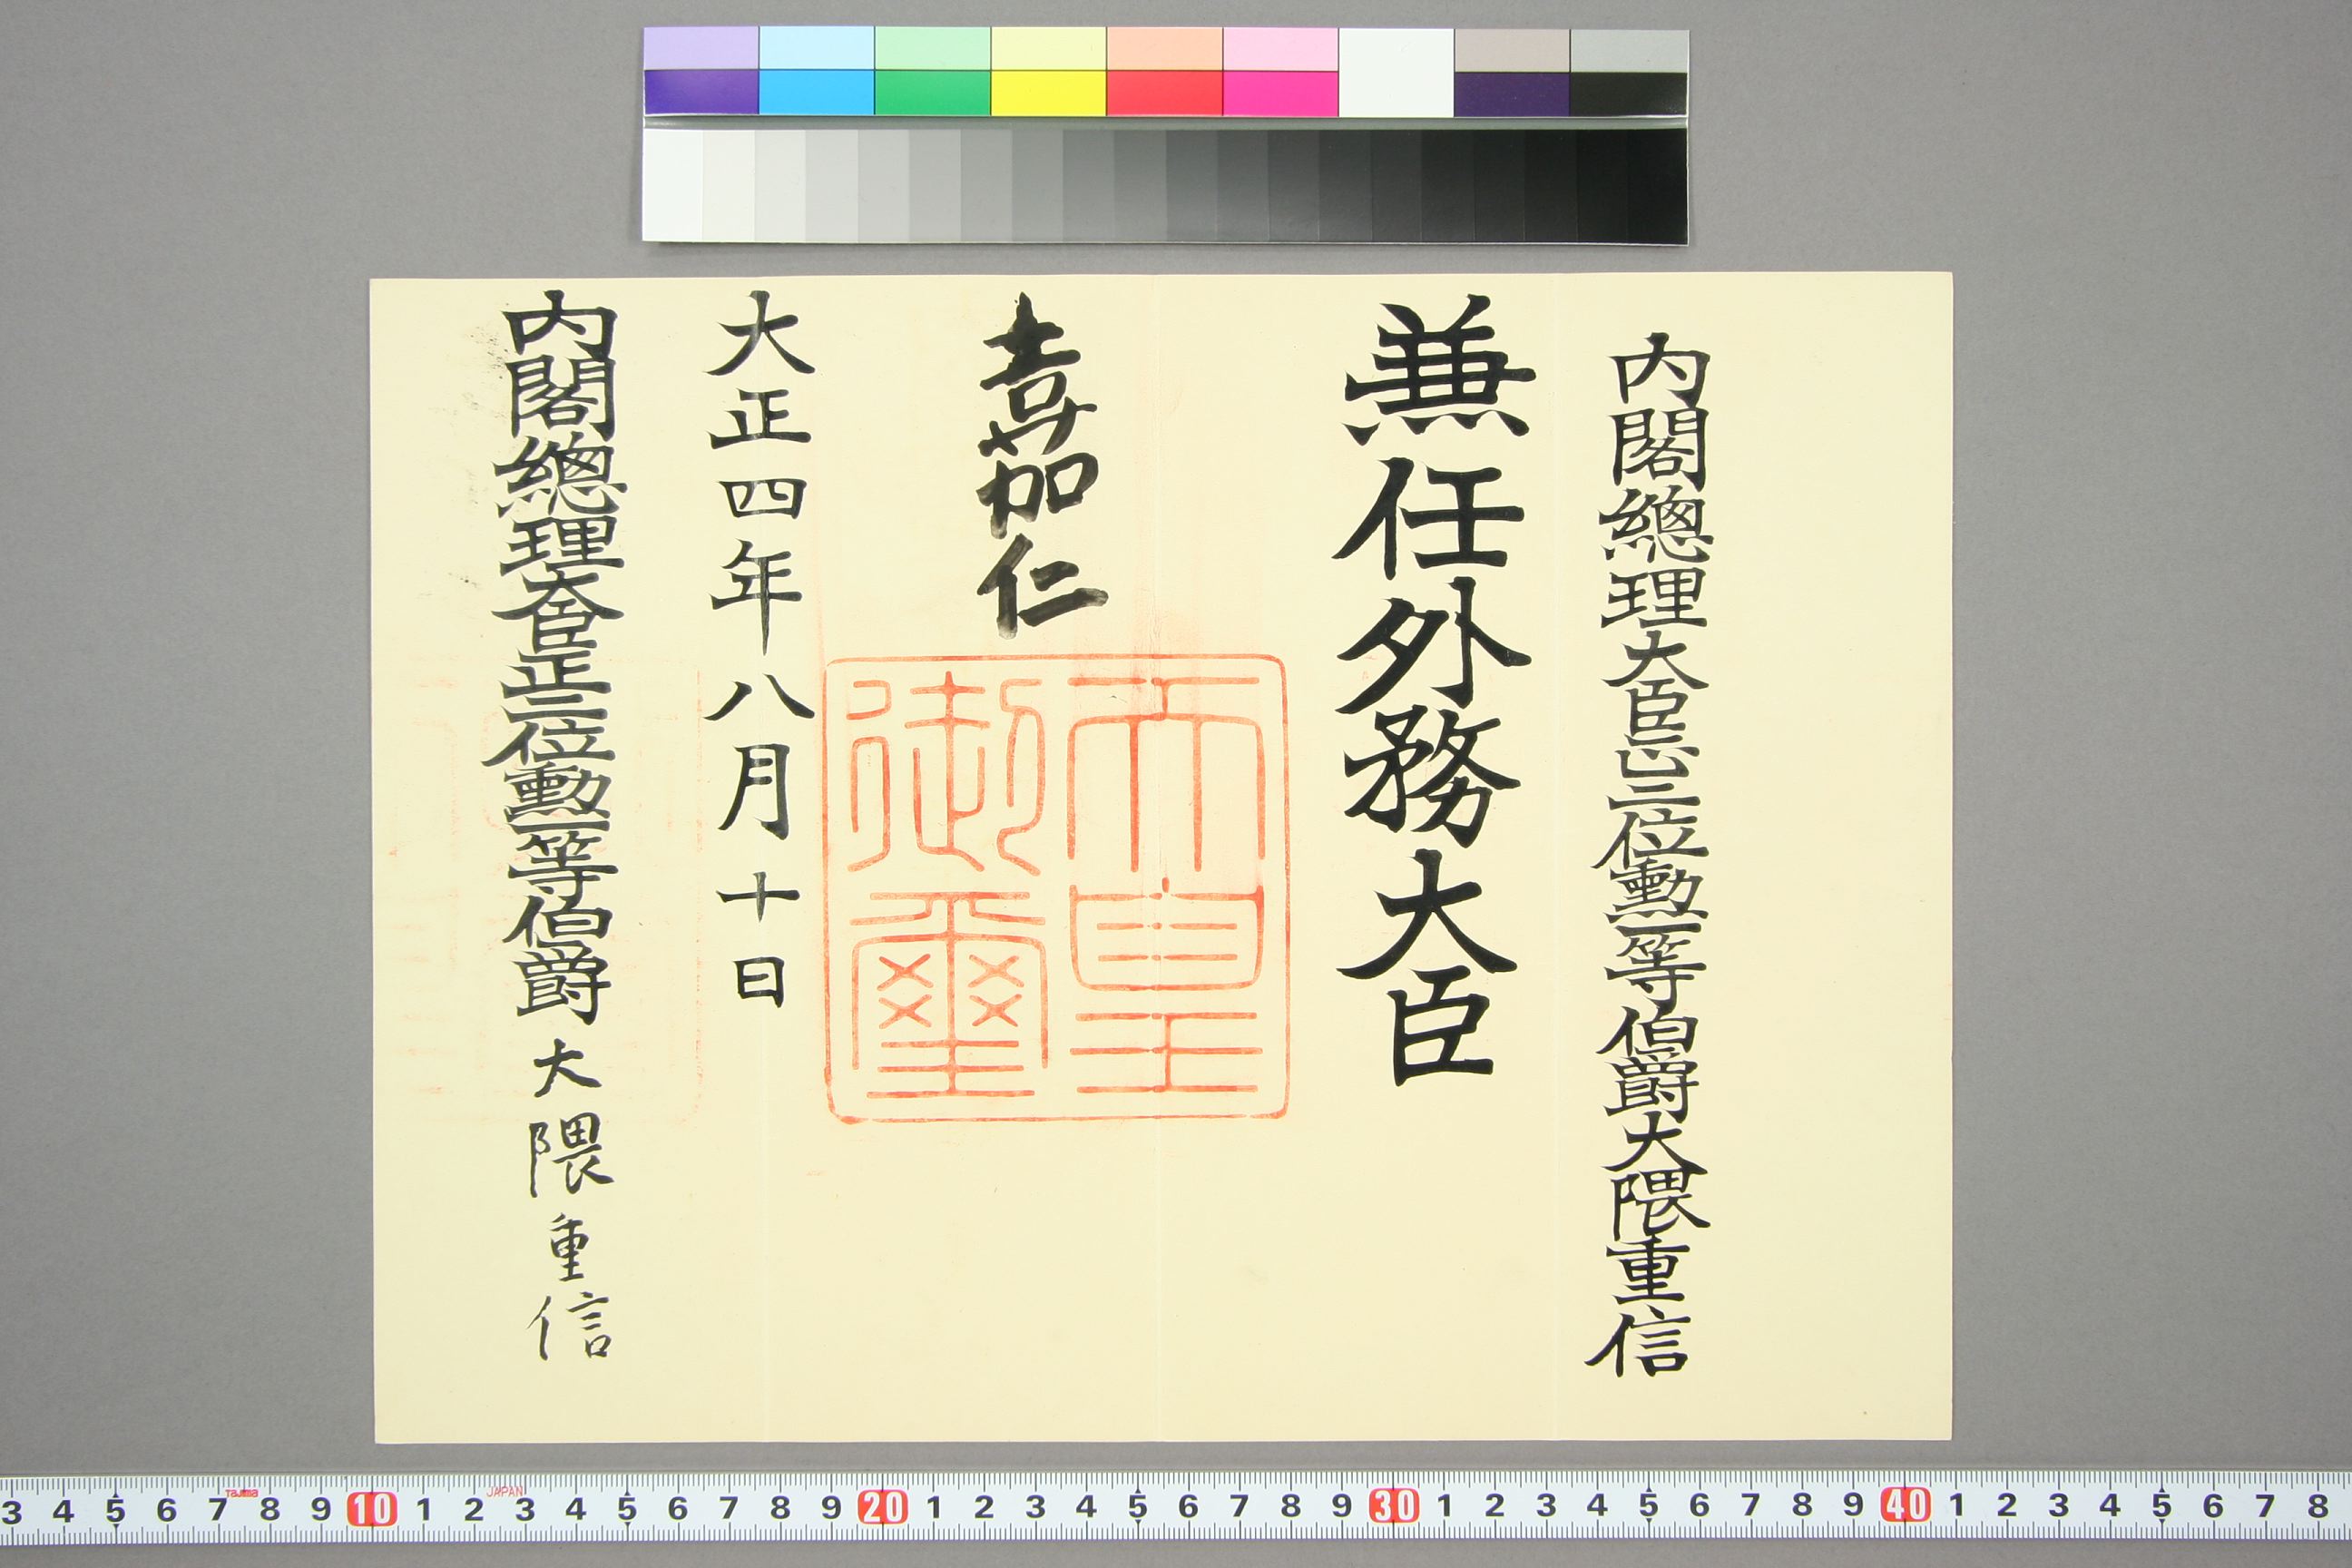 内閣總理大臣正二位勳一等伯爵大隈重信
兼任外務大臣
嘉仁
天皇
御璽
大正四年八月十日
内閣總理大臣正二位勳一等伯爵大隈重信
Tajima JAPAN
3 4 5 6 7 8 9 10 1 2 3 4 5 6 7 8 9 20 1 2 3 4 5 6 7 8 9 30 1 2 3 4 5 6 7 8 9 40 1 2 3 4 5 6 7 8